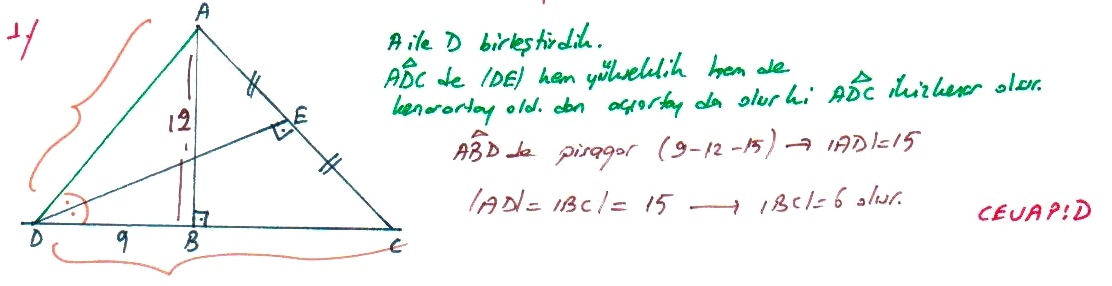 1-)
A
A ile D birleştirdik.
ADC de |DE| hem yükseklik hem de
kenarortay old. dan açıortay da olur ki ADC ikizkenar olur.
12
E
ABD de pisagor (9-12-15) → |AD|=15
|AD| = |BC| = 15 → |BC|=6 olur.
CEVAP:D
D 9 B C